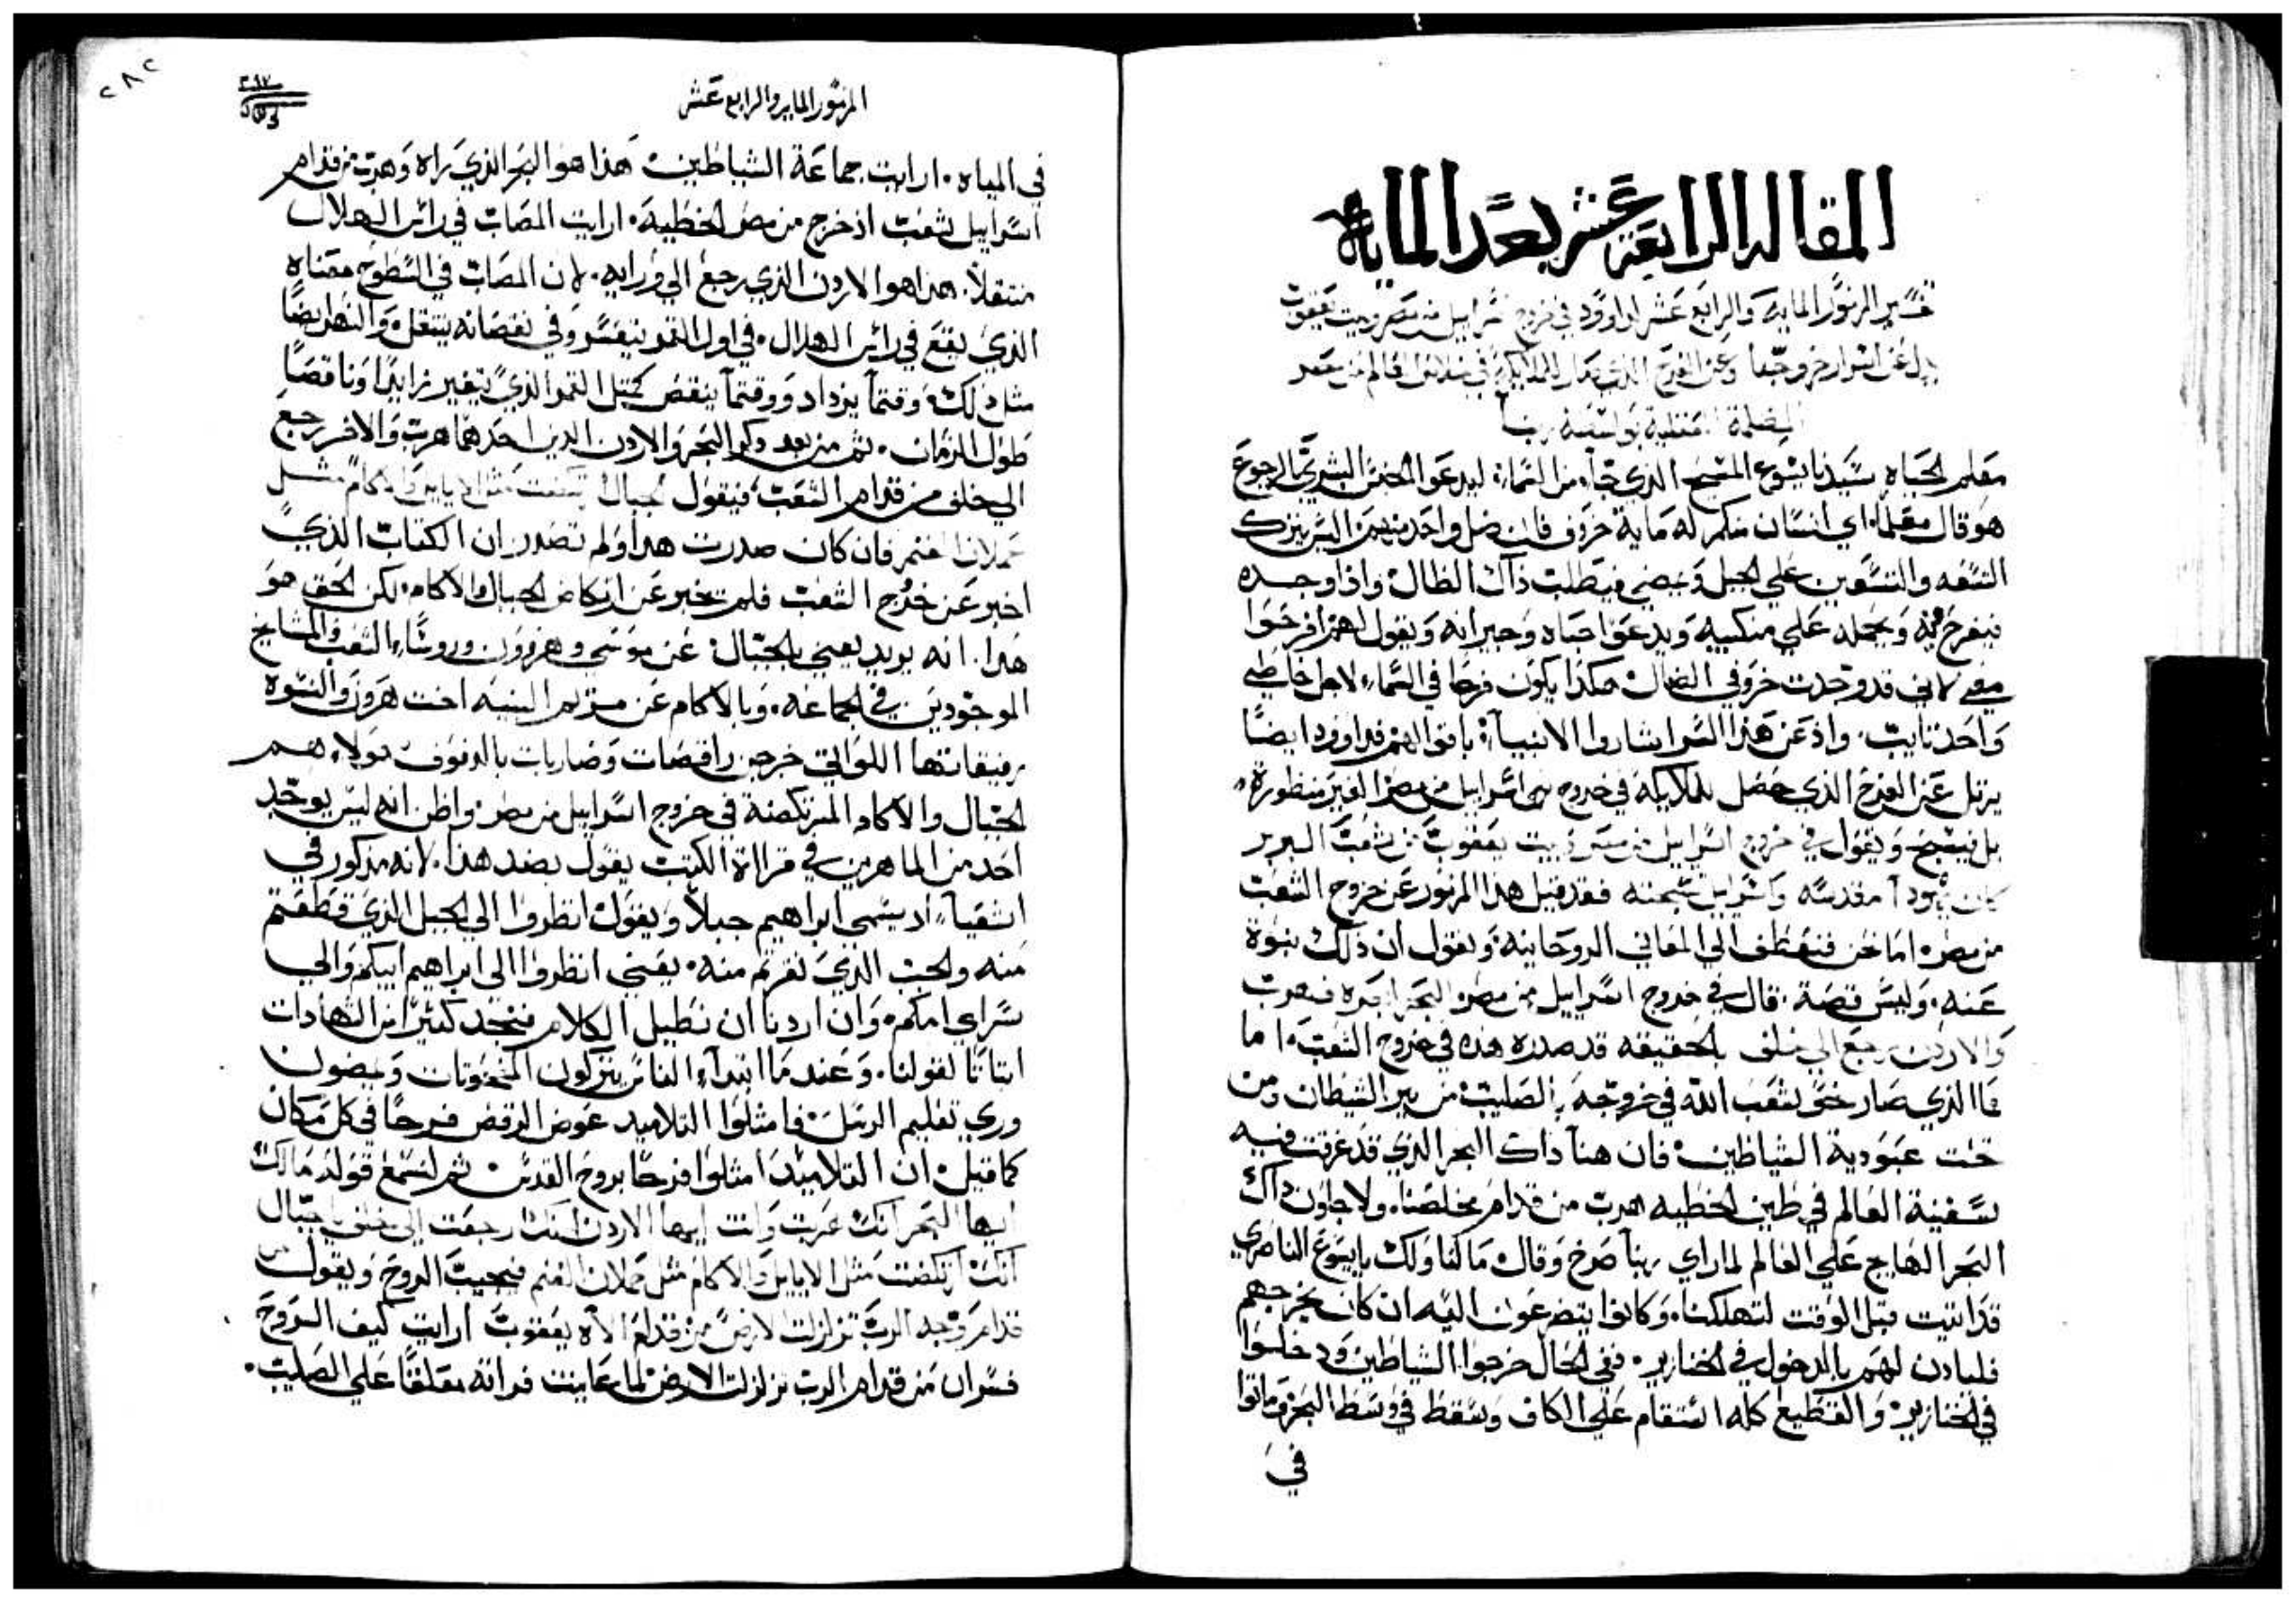 المقاله الرابعة عشر بعد المايه
تفسير المزمور المايه والرابع عشر لداوود في خروج اسراييل من مصر وبيت يعقوب
معلم الحياه سيدنا يسوع المسيح الذي جاء من السماء ليدعو الجنس البشري الي الرجوع
هو قال معلماً اي انسان منكم له ماية خروف فان ضل واحد منهم اليس يترك
التسعه والتسعين علي الجبل ويمضي فيطلب ذاك الضال واذا وجده
فيفرح به ويحمله علي منكبيه ويدعوا احباه وجيرانه ويقول لهم افرحوا
معي لاني قد وجدت خروفي الضال هكذا يكون فرحا في السماء لاجل خاطي
واحد تايب واذ عن هذا السر اشاروا الانبياء باقوالهم فداوود ايضاً
يرتل عن الفرح الذي حصل للملايكة في خروج بني اسراييل من مصر الغير منظورة
بل فيسبح ويقول في خروج اسراييل من مصر وبيت يعقوب من شعب البربر
كان يهودا مقدسه واسراييل سجنه فقد قيل هذا المزمور عن خروج الشعب
من مصر اما نحن فنعطف الي المعاني الروحانيه ونقول ان ذلك نبوة
عنه وليس قصة قال في خروج اسراييل من مصر البحر نظره فهرب
والاردن رجع الي خلف بالحقيقه قد صدره هذه في خروج الشعب اما
ما الذي صار حتي شعب الله في خروجه بالصليب من بير الشيطان ومن
تحت عبودية الشياطين فان هنا ذاك البحر الذي قد غرقت فيه
سفينة العالم في طين الخطيه هرب من قدام مخلصنا ولاجاون ذاك
البحر الهاج علي العالم لما راي ربنا صرخ وقال ما لنا ولك يا يسوع الناصري
قد اتيت قبل الوقت لتهلكنا وكانوا يتضرعون اليه ان كان يخرجهم
فليادن لهم بالدخول في الخنازير ففي الحال خرجوا الشياطين ودخلوا
في الخنازير والقطيع كله استقام علي الكاف وسقط في وسط البحر وماتوا
في
٢٨٢
المزمور المايه والرابع عشر
في المياه ارايت جماعة الشياطين هذا هو البحر الذي راه وهرب من قدام
اسراييل شعب اذ خرج من مصر الخطية ارايت المصاب في راس الهلال
منتقلاً هذا هو الاردن الذي رجع الي ورايه لان المصاب في السطوح معناه
الذي يقع في راس الهلال في اول القمر يتغير وفي نقصانه ينتقل والنهر ايضاً
مثل ذلك وقتماً يزداد ووقتماً ينقص كمثل القمر الذي يتغير زايداً وناقصاً
طول الزمان ثم من بعد ذكر البحر والاردن الدين احدهما هرب والاخر رجع
الي خلف من قدام الشعب فيقول الجبال ارتكضت مثل الايايل والاكام مثل
حملان الغنم فان كان صدرت هذا ولم تصدر ان الكتاب الذي
اخبر عن خروج الشعب فلم يخبر عن ارتكاض الجبال والاكام لكن الحق هو
هذا انه يريد يعني بالجبال عن موسي وهرون وروساء الشعب والمشايخ
الموجودين في الجماعه وبالاكام عن مريم النبيه اخت هرون والنسوة
رفيقاتها اللواتي خرجن راقصات وضاربات بالدفوف هولاء هم
الجبال والاكام المرتكضة في خروج اسراييل من مصر واظن انه ليس يوجد
احد من الماهرين في قراءة الكتب يقول بضد هذا لانه مذكور في
اشعيا اذ يسمي ابراهيم جبلاً ويقول انظروا الي الجبل الذي قطعتم
منه والجب الذي نقرتم منه يعني انظروا الي ابراهيم ابيكم والي
ساراي امكم وان اردنا ان نطيل الكلام فنجد كثيراً من الشهادات
اثباتاً لقولنا وعند ما ابتداء الناس يتركون المنحوتات ويمضون
وري تعليم الرسل فامثلوا التلاميد عوض الرقص فرحاً في كل مكان
كما قيل ان التلاميد امتلوا فرحاً بروح القدس ثم لنسمع قوله مالك
ايها البحر انك هربت وانت ايها الاردن انك رجعت الي خلف يا جبال
انك ارتكضت مثل الايايل والاكام مثل حملان الغنم فيجيب الروح ويقول
قدام وجه الرب تزلزلت الارض من قدام الاه يعقوب ارايت كيف الروح
فسر ان من قدام الرب تزلزلت الارض لما عاينت معلقاً علي الصليب